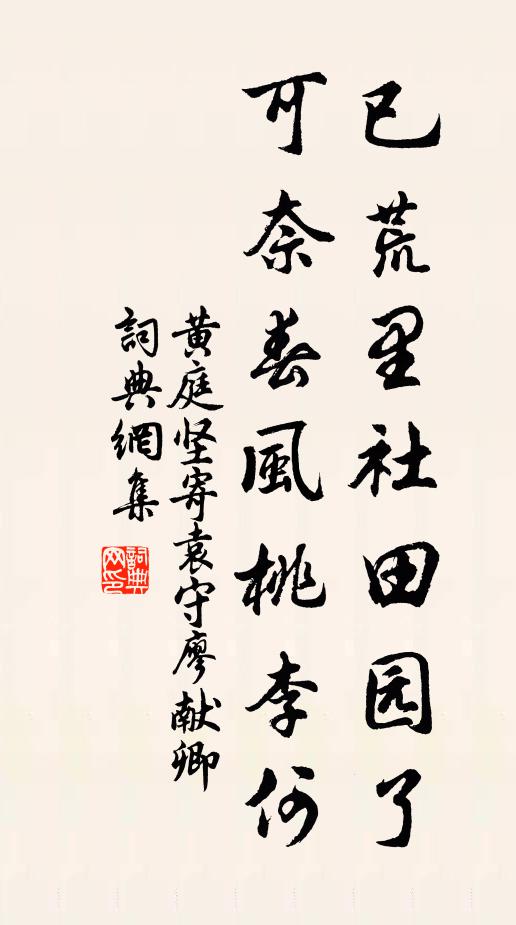 已荒里社田园了
可奈春風桃李何
黄庭坚寄袁守廖献卿
詞典網集
詞典網印